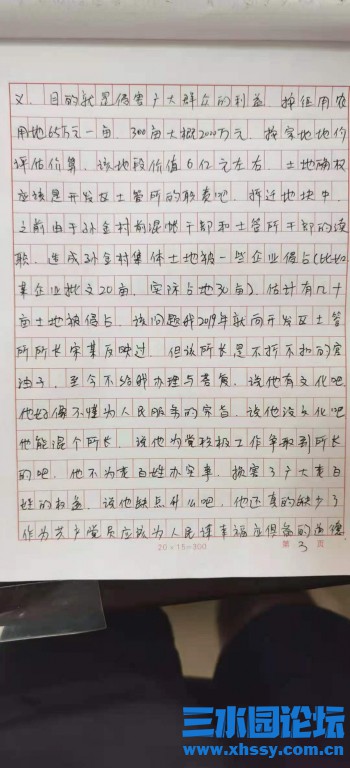 义，目的就是侵害广大群众的利益，按征用农
用地65万元一亩，300亩大概2000万元，按实地地价
评估价算，该地段价值6亿元左右，土地确权
应该是开发区土管所的职责吧，拆迁地块中，
之前由于孙金村前混帐干部和土管所干部的渎
职，造成孙金村集体土地被一些企业侵占(比如
某企业批文20亩，实际占地30亩)，估计有几十
亩土地被侵占，该问题我2019年就向开发区土管
所所长宋某反映过，但该所长是不折不扣的官
油子，至今不给我办理与答复，说他有文化吧
他好像不懂为人民服务的宗旨，说他没文化吧
他能混个所长，说他为党积极工作争取到所长
的吧，他不为老百姓办实事，损害了广大老百
姓的权益，说他缺点什么吧，他还真的缺少了
作为共产党员应该为人民谋幸福应俱备的道德
20×15=300
第 3 页
三水园论坛
www.xhssy.com.cn